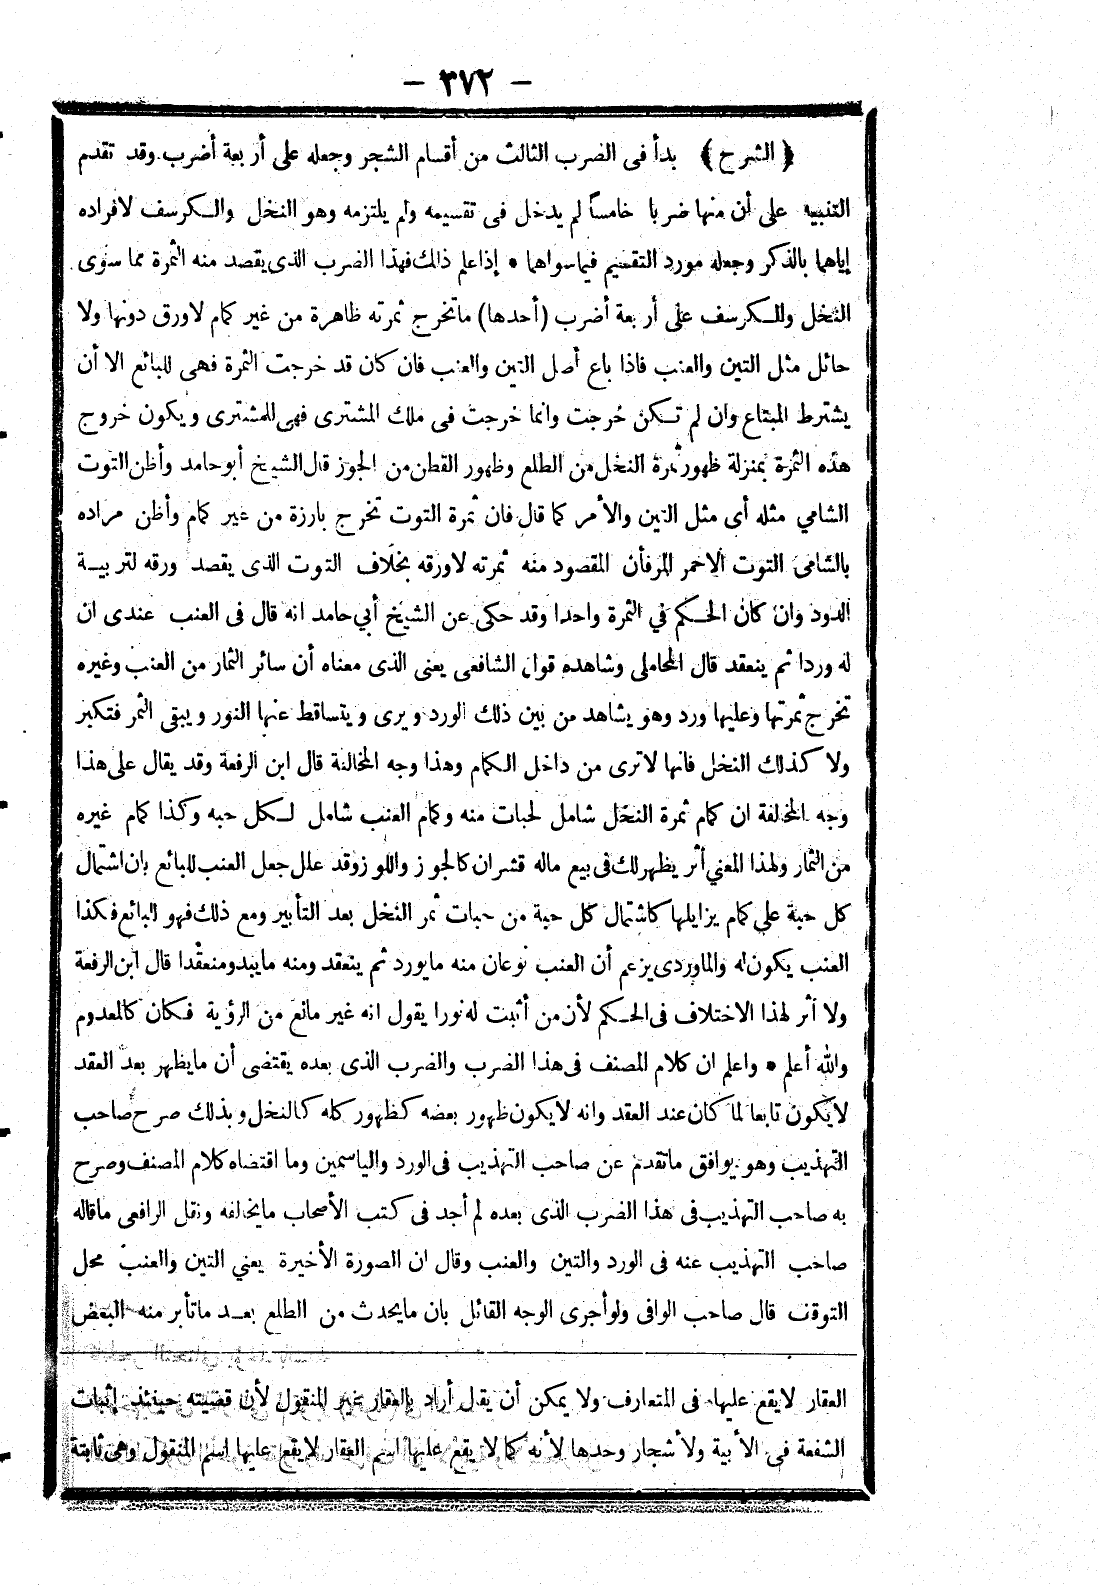 – ٣٧٢ –
﴿ الشرح ﴾ بدأ فى الضرب الثالث من أقسام الشجر وجعله على أربعة أضرب وقد تقدم
التنبيه على أن منها ضربا خامساً لم يدخل فى تقسيمه ولم يلتزمه وهو النخل والكرسف لافراده
إياهما بالذكر وجعله مورد التقسيم فيما سواهما * إذا علم ذلك فهذا الضرب الذى يقصد منه الثمرة مما سوى
النخل والكرسف على أربعة أضرب (أحدها) ما تخرج ثمرته ظاهرة من غير كمام لاورق دونها ولا
حائل مثل التين والعنب فاذا باع أصل التين والعنب فان كان قد خرجت الثمرة فهى للبائع الا أن
يشترط المبتاع وان لم تكن خرجت وانما خرجت فى ملك المشترى فهى للمشترى ويكون خروج
هذه الثمرة بمنزلة ظهور ثمرة النخل من الطلع وظهور القطن من الجوز قال الشيخ أبو حامد وأظن التوت
الشامي مثله أى مثل التين والأمر كما قال فان ثمرة التوت تخرج بارزة من غير كمام وأظن مراده
بالشامى التوت الاحمر المرفأن المقصود منه ثمرته لاورقه بخلاف التوت الذى يقصد ورقه لتربية
الدود وان كان الحكم في الثمرة واحدا وقد حكى عن الشيخ أبي حامد انه قال فى العنب عندى ان
له وردا ثم ينعقد قال المحاملى وشاهده قول الشافعى يعنى الذى معناه أن سائر الثمار من العنب وغيره
تخرج ثمرتها وعليها ورد وهو يشاهد من بين ذلك الورد ويرى ويتساقط عنها النور ويبقى الثمر فتكبر
ولا كذلك النخل فانها لاترى من داخل الكمام وهذا وجه المخالفة قال ابن الرفعة وقد يقال على هذا
وجه المخالفة ان كمام ثمرة النخل شامل لحبات منه وكمام العنب شامل لكل حبه وكذا كمام غيره
من الثمار ولهذا المعني أثر يظهر لك فى بيع ماله قشران كالجوز واللوز وقد علل جعل العنب للبائع بان اشتمال
كل حبة على كمام يزايلها كاشتمال كل حبة من حبات ثمر النخل بعد التأبير ومع ذلك فهو للبائع فكذا
العنب يكون له والماوردى يزعم أن العنب نوعان منه مايورد ثم ينعقد ومنه مايبدو منعقدا قال ابن الرفعة
ولا أثر لهذا الاختلاف فى الحكم لأن من أثبت له نورا يقول انه غير مانع من الرؤية فكان كالمعدوم
والله أعلم * واعلم ان كلام المصنف فى هذا الضرب والضرب الذى بعده يقتضى أن مايظهر بعد العقد
لايكون تابعا لما كان عند العقد وانه لايكون ظهور بعضه كظهور كله كالنخل وبذلك صرح صاحب
التهذيب وهو يوافق ماتقدم عن صاحب التهذيب فى الورد والياسمين وما اقتضاه كلام المصنف وصرح
به صاحب التهذيب فى هذا الضرب الذى بعده لم أجد فى كتب الأصحاب مايخالفه ونقل الرافعى ماقاله
صاحب التهذيب عنه فى الورد والتين والعنب وقال ان الصورة الأخيرة يعني التين والعنب محل
التوقف قال صاحب الوافى ولو أجرى الوجه القائل بان مايحدث من الطلع بعد ماتأبر منه البعض
العقار لايقع عليها فى المتعارف ولا يمكن أن يقل أراد بالعقار غير المنقول لأن قضيته حينئذ إثبات
الشفعة فى الأبية ولأشجار وحدها لأنه كما لا يقع عليها اسم العقار لايقع عليها اسم المنقول وهى ثابتة